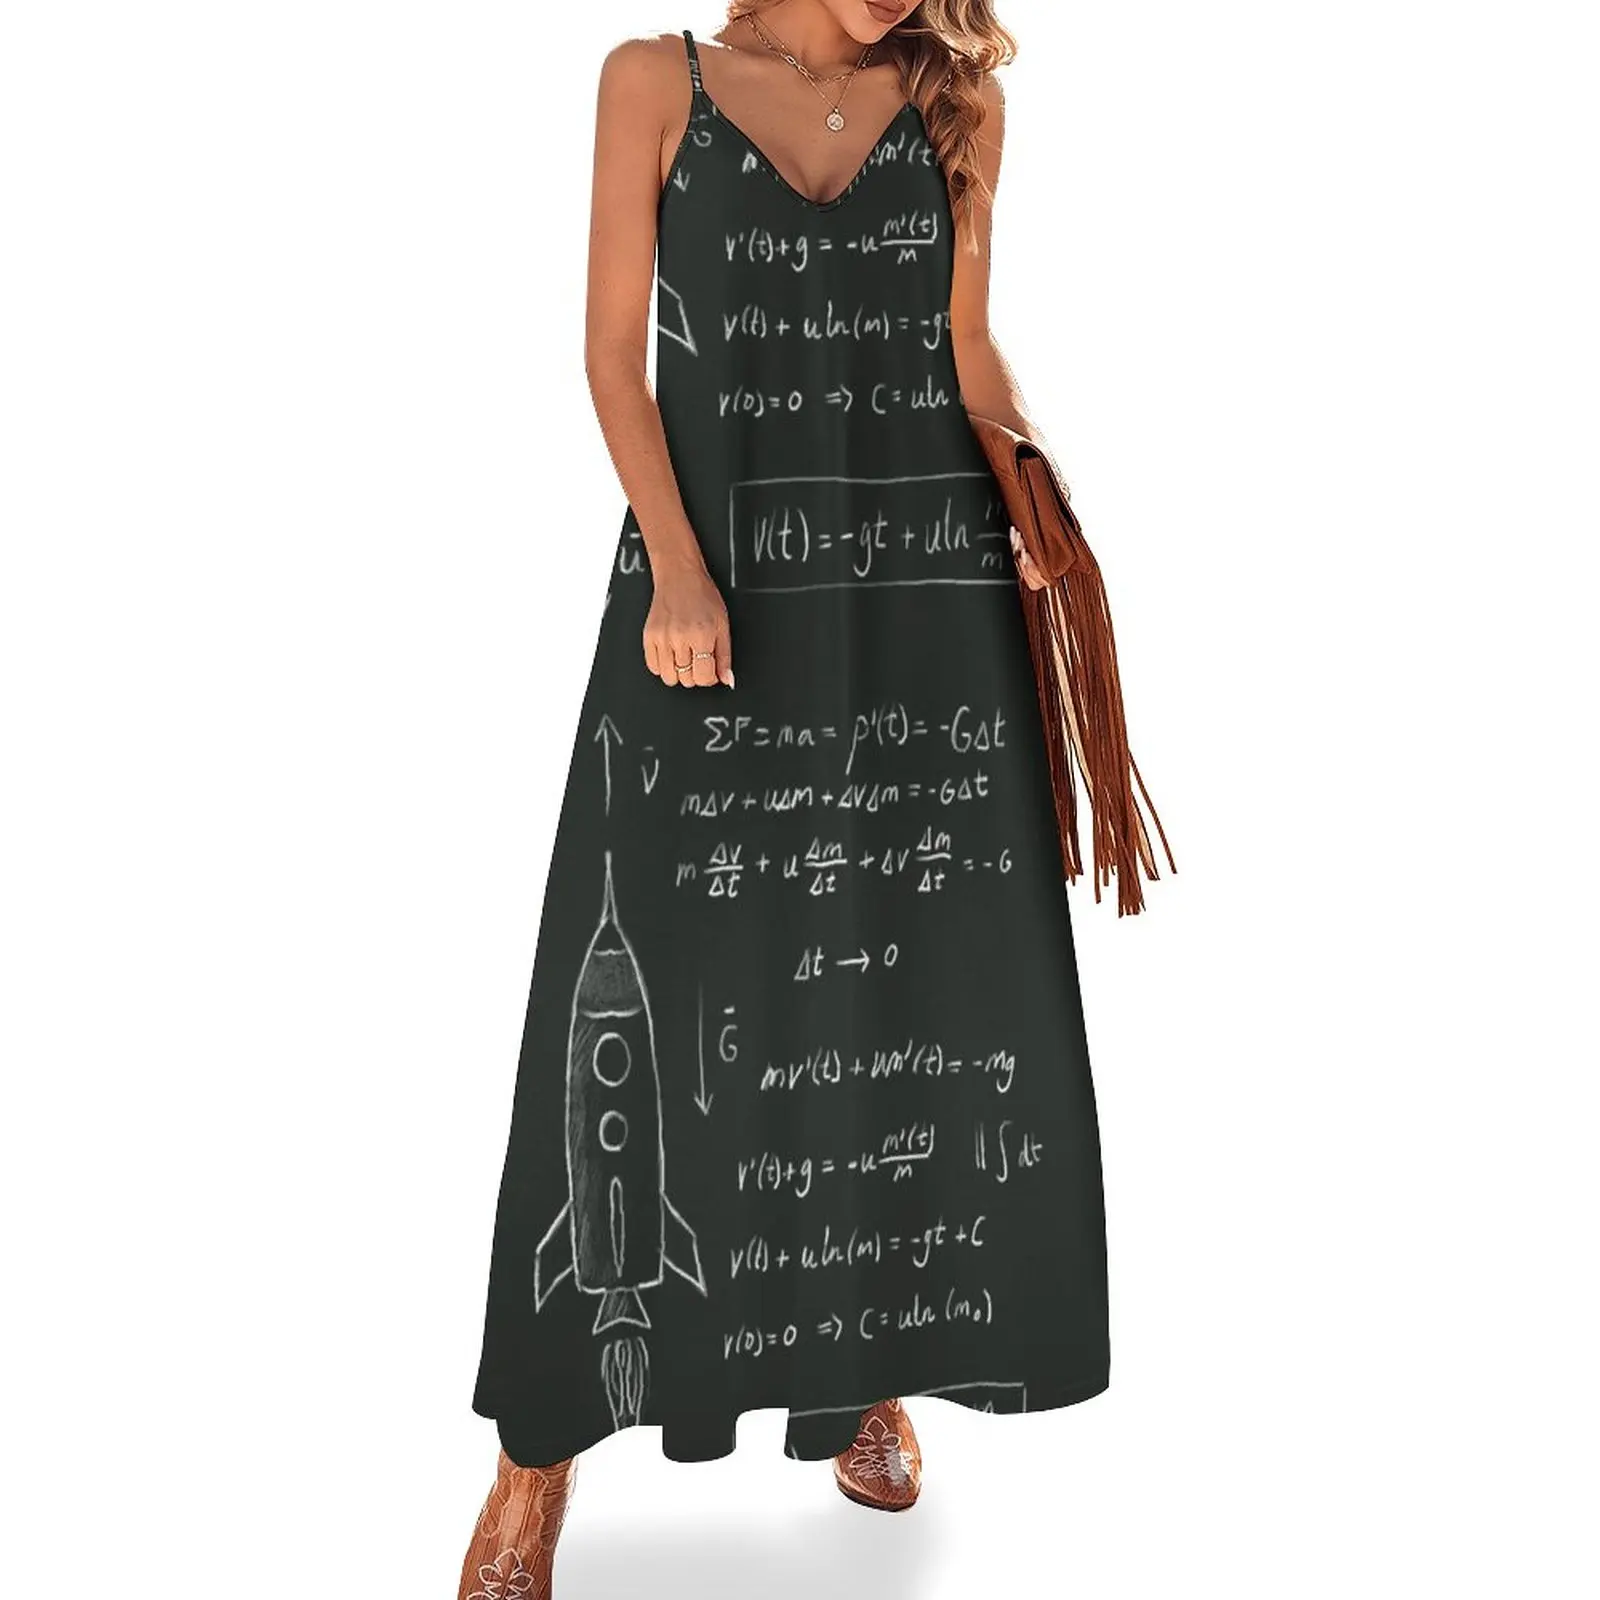 m'(t)
v'(t)+g = -u m'(t)/m
v(t) + u ln(m) = -gt
v(0)=0 => C = u ln
v(t) = -gt + u ln m/m
ū
v̄
ΣF = ma = p'(t) = -GΔt
mΔv + uΔm + ΔvΔm = -GΔt
m Δv/Δt + u Δm/Δt + Δv Δm/Δt = -G
Δt → 0
Ḡ
mv'(t) + um'(t) = -mg
v'(t)+g = -u m'(t)/m || ∫ dt
v(t) + u ln(m) = -gt + C
v(0)=0 => C = u ln (m₀)